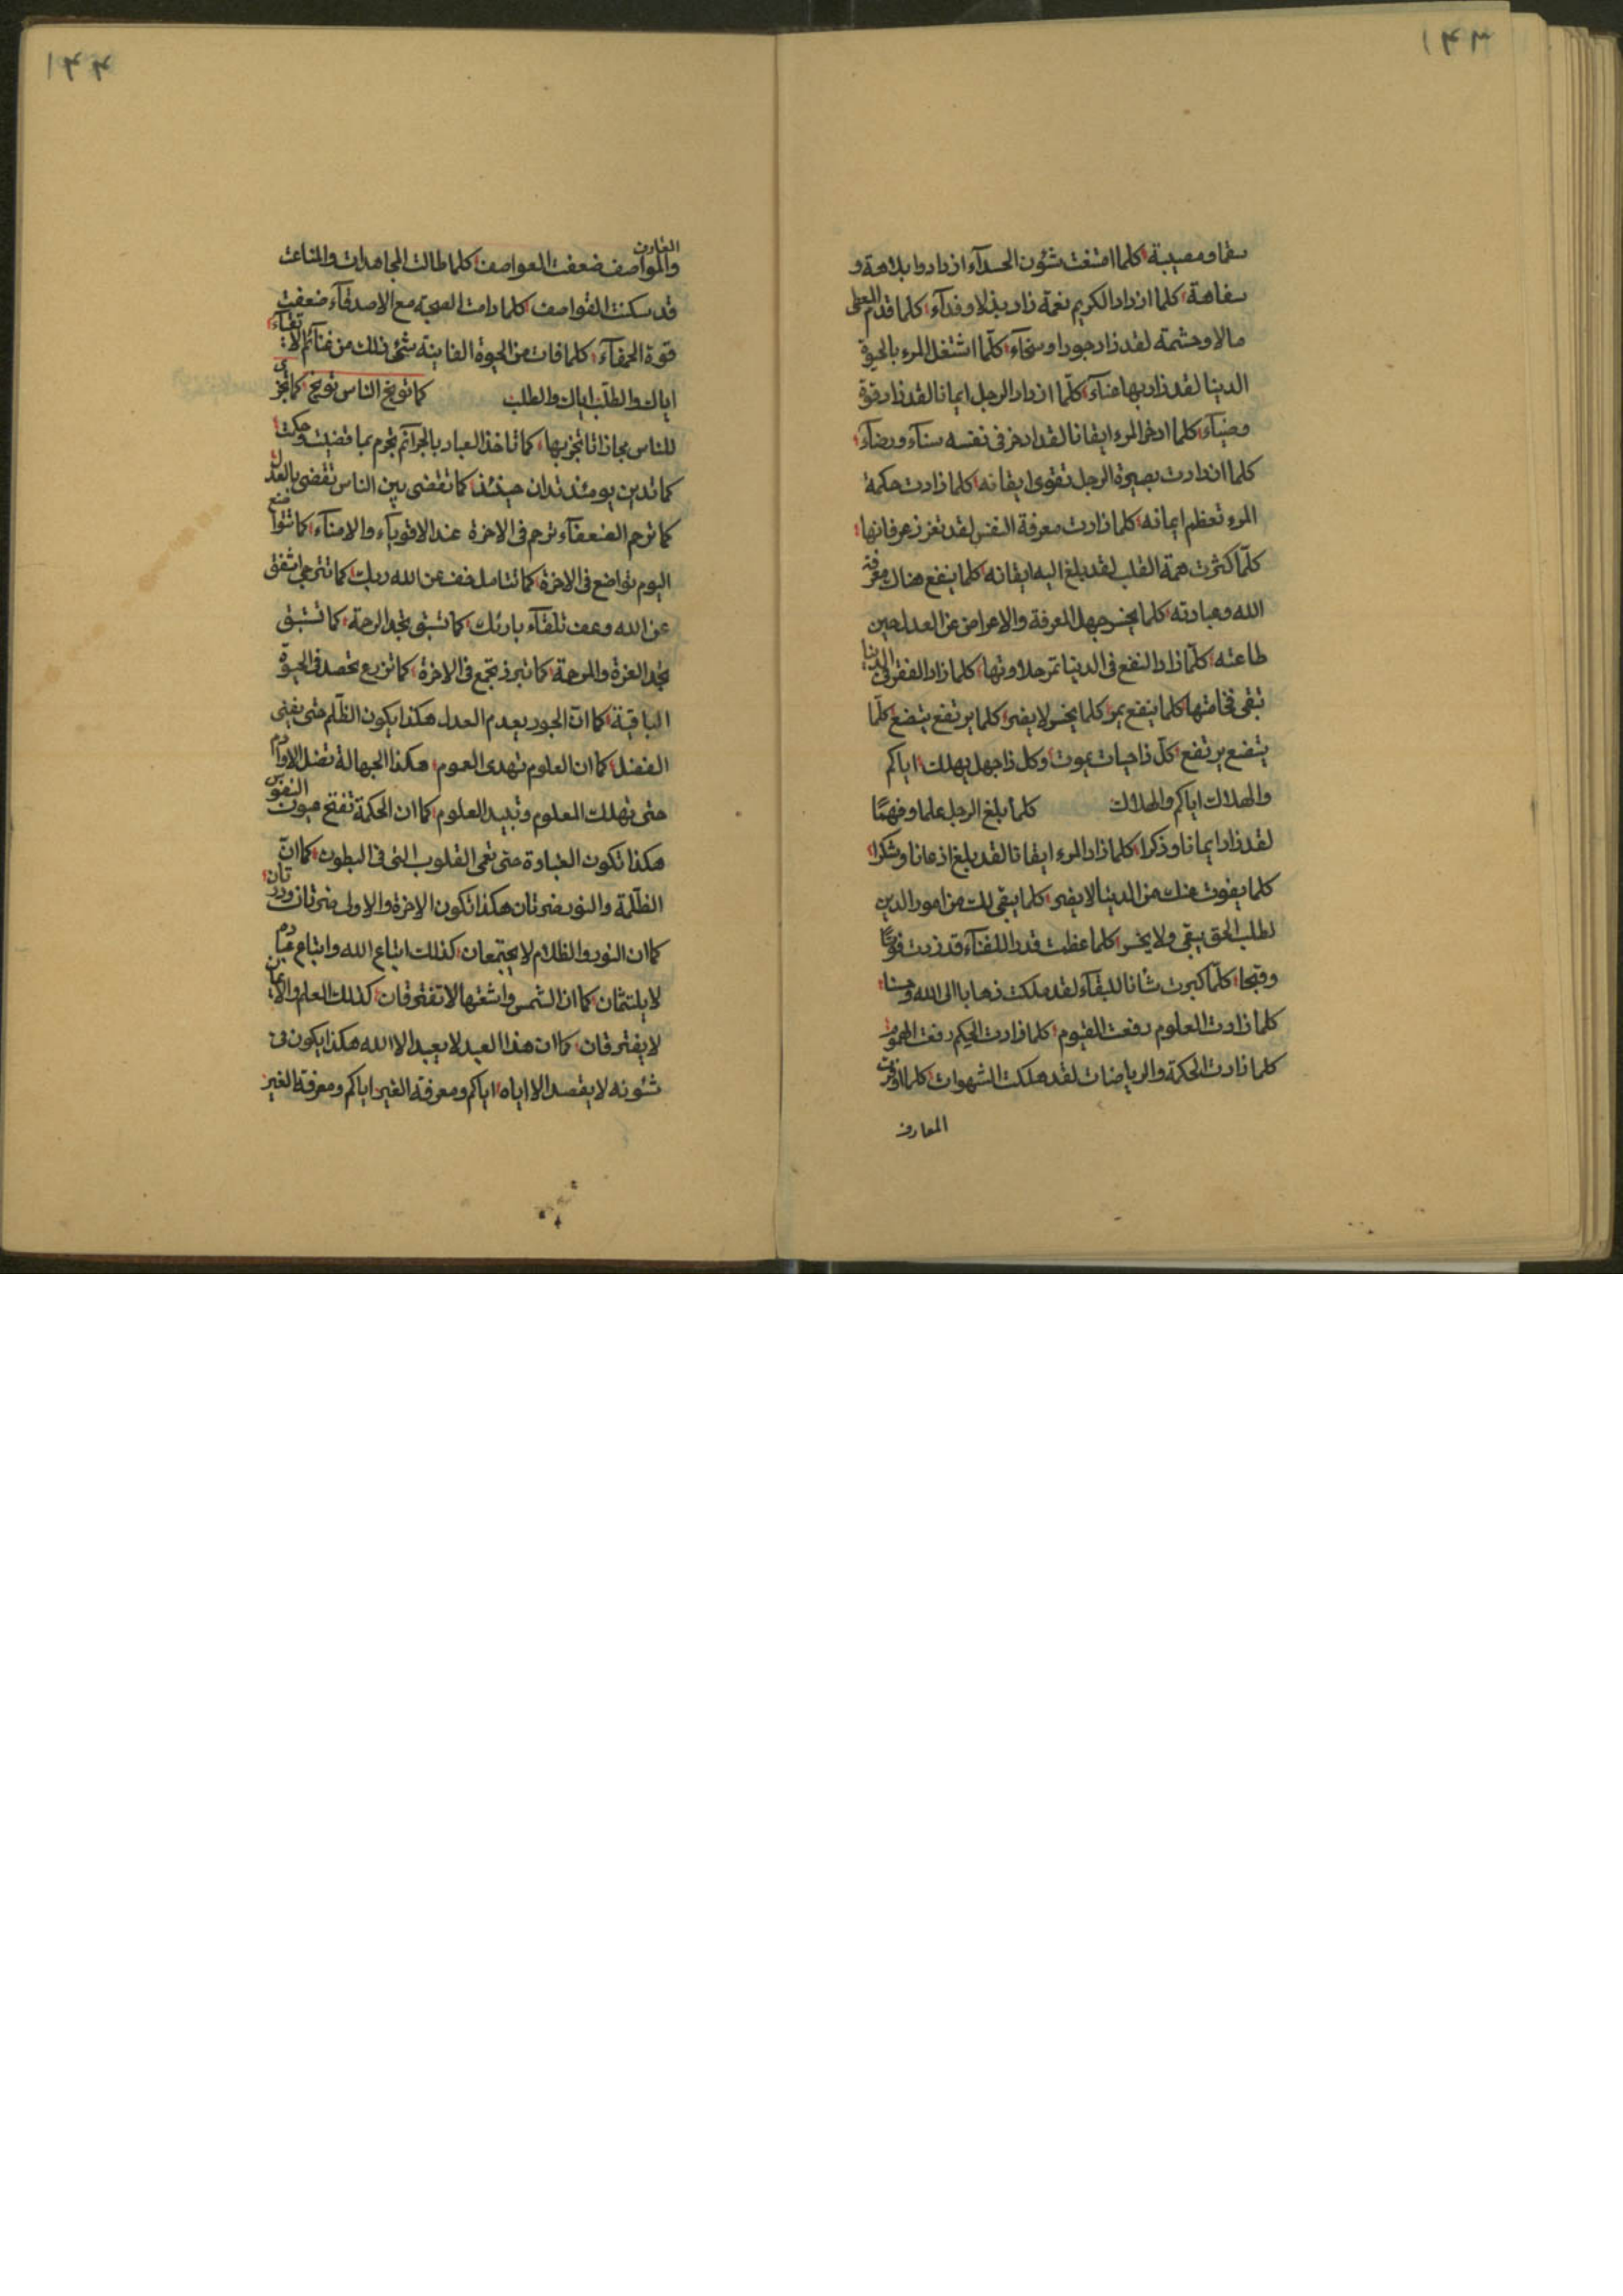 ١٤٣
سقما ومصيبة كلما امتنعت شئون الحسدآء ازدادوا بلاهة و
سفاهة كلما ازداد الكريم نعمة زاد بذلا وفدآء كلما قدم المعطى
مالا وحشمة لقد زاد جودا وسخآء كلما اشتغل المرء بالحيوة
الدنيا لقد زاد بها عنآء كلما ازداد الرجل ايمانا لقد زاد قوة
وضيآء كلما ادخر المرء ايقانا لقد ادخر فى نفسه سنآء ورضآء
كلما ازدادت بصيرة الرجل تقوى ايقانه كلما زادت حكمة
المرء تعظم ايمانه كلما زادت معرفة النفس لقد تعزز عرفانها
كلما كثرت همة القلب لقد بلغ اليه ايقانه كلما ينفع هناك معرفة
الله وعبادته كلما يخسر جهل المعرفة والاعراض عن العدل حين
طاعته كلما زاد النفع فى الدنيا تمر حلاوتها كلما زاد الفقر فى الدنيا
تبقى فخامتها كلما ينفع يمر كلما يخسر لا يضر كلما يرتفع يتضع كلما
يتضع يرتفع كل ذا حيات يموت وكل ذا جهل يهلك اياكم
والهلاك اياكم والهلاك كلما بلغ الرجل علما وفهمًا
لقد زاد ايمانا وذكرا كلما زاد المرء ايقانا لقد بلغ اذعانا وشكرا
كلما يفوت عنك من الدنيا لا يضر كلما يبقى لك من امور الدين
لطلب الحق يبقى ولا يخسر كلما عظمت قدر اللفنآء قد زدت فوتًا
وقبحا كلما كبرت شانا للبقآء لقد ملكت ذهابا الى الله وحسنا
كلما زادت العلوم رفعت الغيوم كلما زادت الحكم رفعت الهموم
كلما زادت الحكمة والرياضات لقد هلكت الشهوات كلما وفرت
المعارف
١٤٤
المعارف
والمواصف ضعفت العواصف كلما طالت المجاهدات والمتاعب
قد سكنت القواصف كلما دامت الصحبة مع الاصدقآء ضعفت
قوة الحمقآء كلما فات من الحيوة الفانية شئ ذلك من غنائم الاتقيآء
اياك والطلب اياك والطلب كما توبخ الناس توبخ كما تجزى
للناس مجازاتا تجز بها كما تاخذ العباد بالجرآئم تجرم بما قضيت وحكمت
كما تدين يومئذ تدان حينئذ كما تقضى بين الناس تقضى بالعدل
كما ترحم الضعفآء ترحم فى الاخرة عند الاقويآء والامنآء كما تتواضع
اليوم تواضع فى الاخرة كما تتامل خف عن الله ربك كما تترجى اشفق
عن الله وعف تلقآء بارئك كما تسبق تجد الرحمة كما تسبق
تجد العزة والمرحمة كما تبرز تجمع فى الاخرة كما تزرع تحصد فى الحيوة
الباقية كما ان الجور يعدم العدل هكذا يكون الظلم حتى يفنى
الفضل كما ان العلوم تهدى العموم هكذا الجهالة تضل الاوادم
حتى تهلك المعلوم وتبيد العلوم كما ان الحكمة تفتح عيون النفوس
هكذا تكون الغباوة حتى تعمى القلوب التى فى البطون كما ان
الظلمة والنور ضرتان هكذا تكون الاخرة والاولى ضرتان
كما ان النور والظلام لا يجتمعان كذلك اتباع الله واتباع عبادم
لا يلتئمان كما ان الشمس واشعتها لا تفترقان كذلك العلم والايمان
لا يفترقان كما ان هذا العبد لا يعبد الا الله هكذا يكون فى
شئونه لا يقصد الا اياه اياكم ومعرفة الغير اياكم ومعرفة الغير